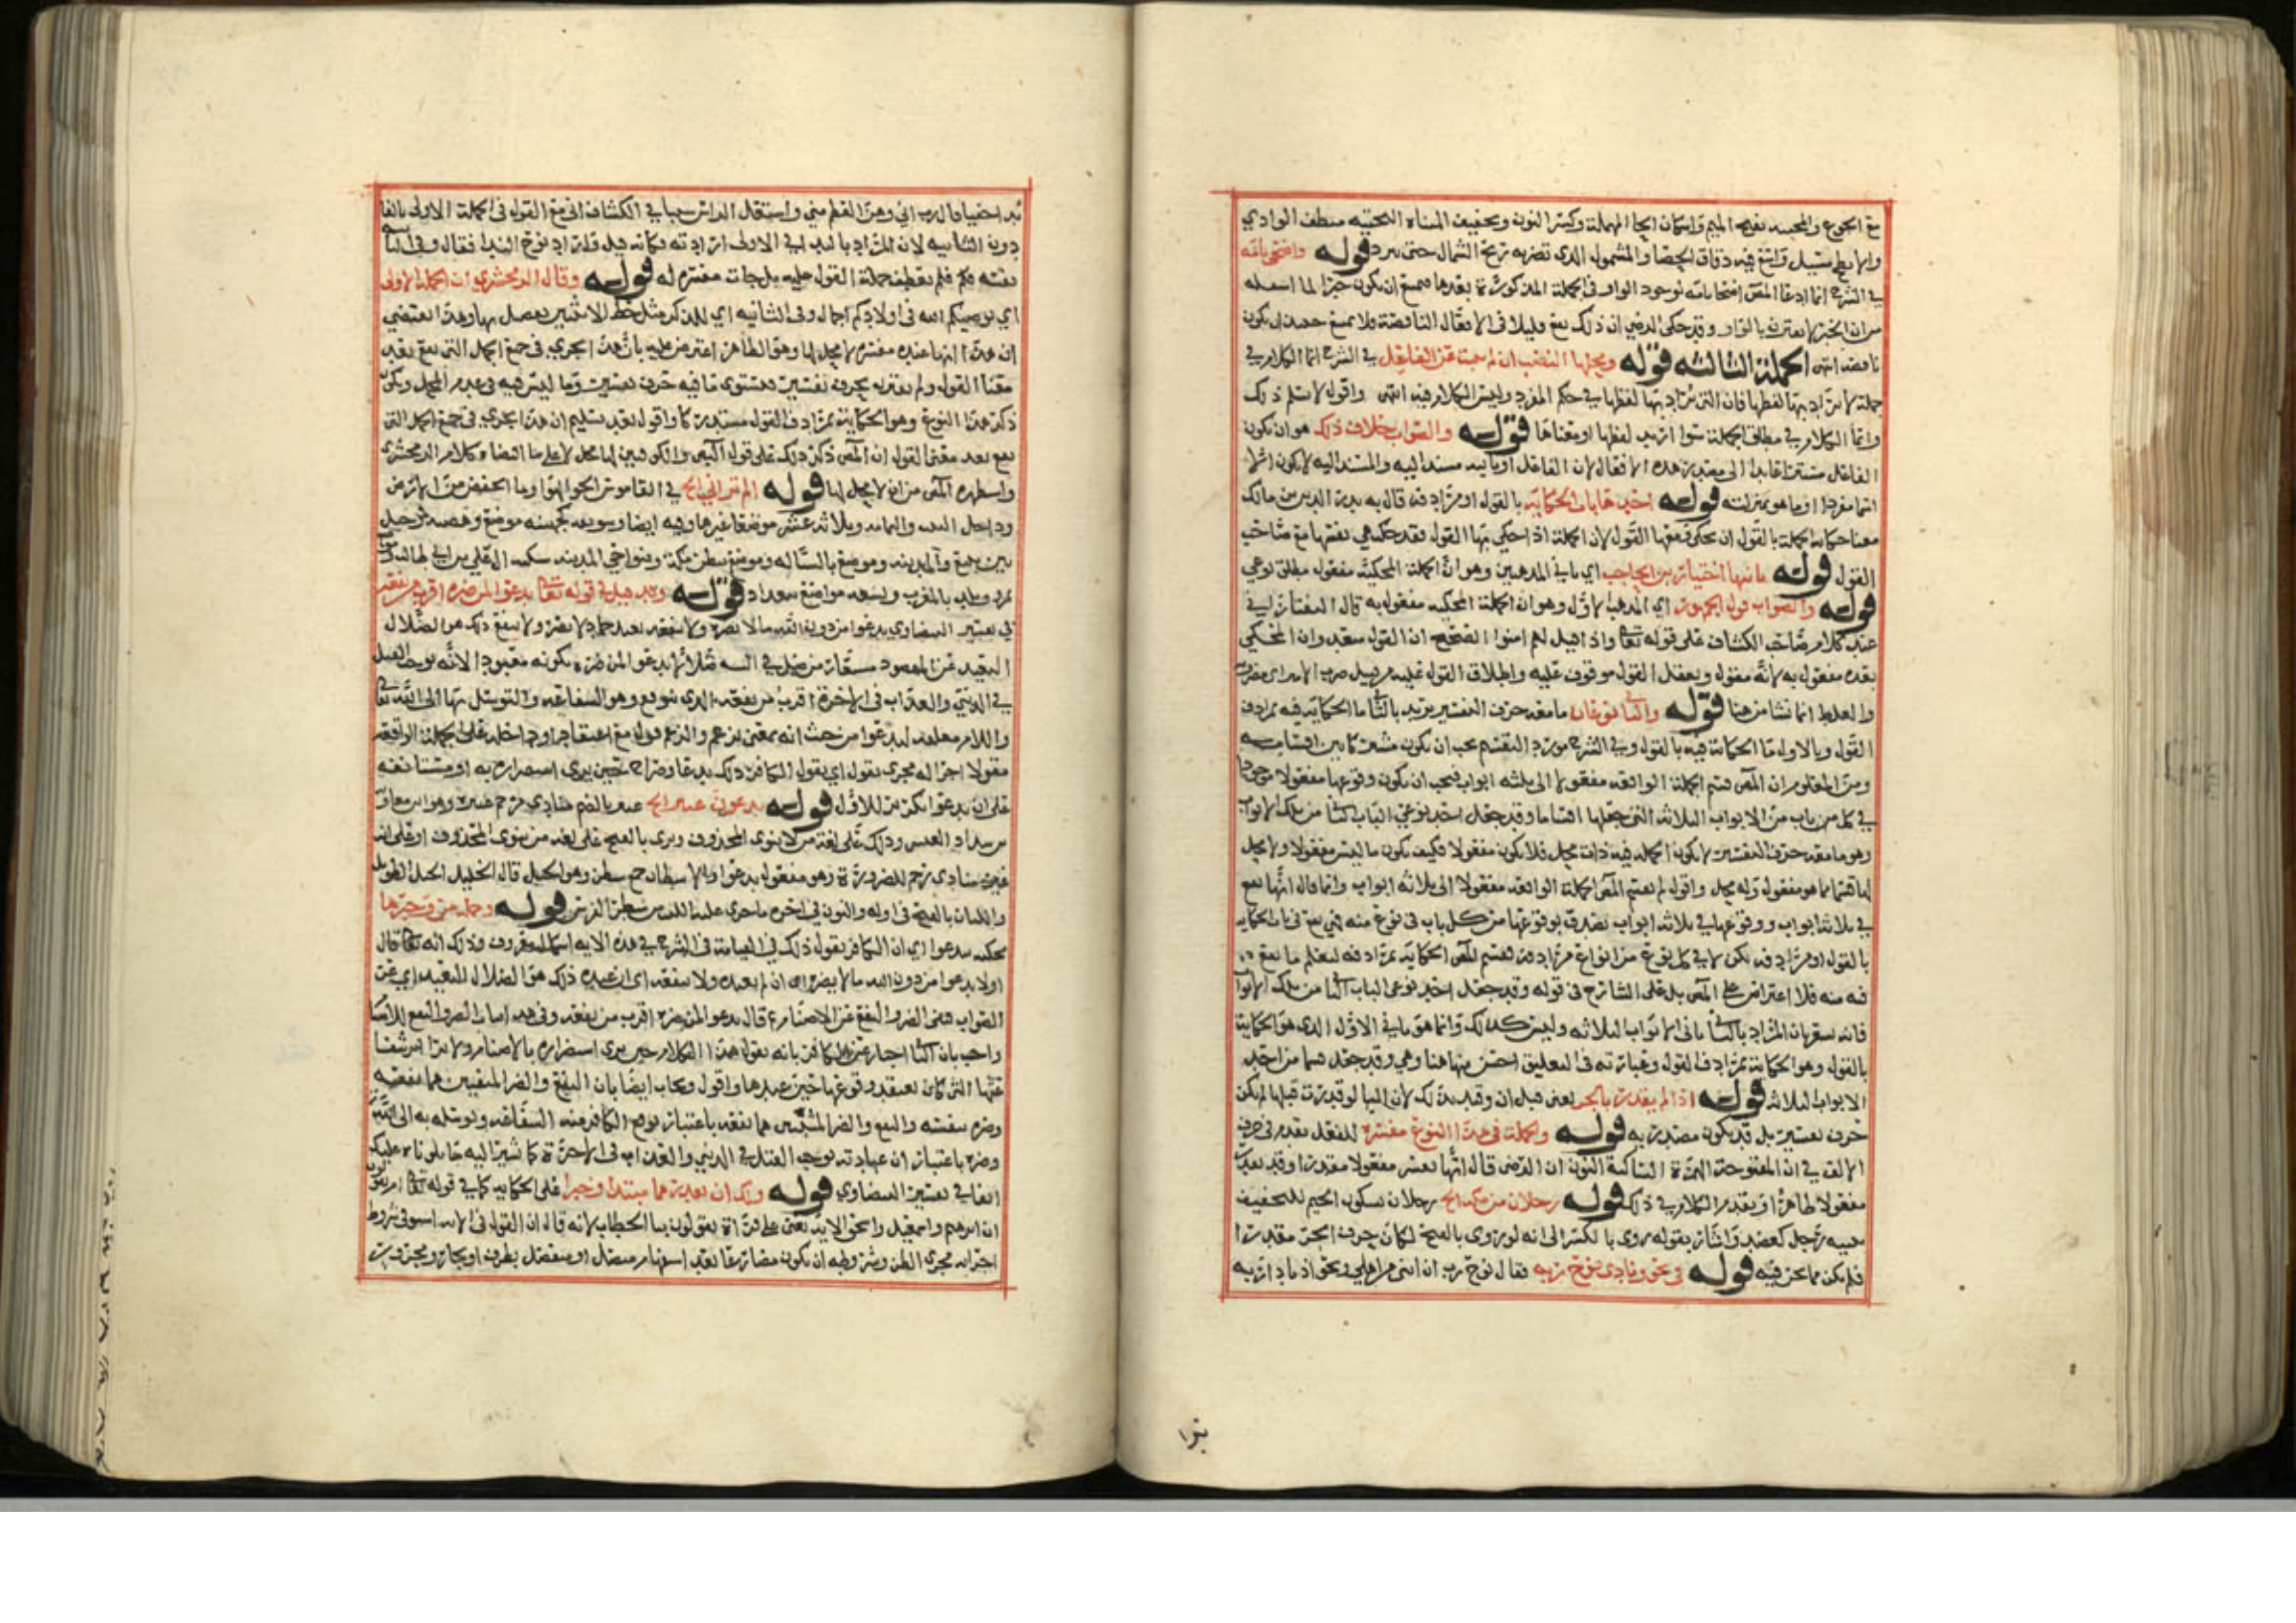 مع الجوع والمحنيه بفتح الميم واسكان الحا المهملة وكسر النون وتخفيف المثناه التحتيه منعطف الوادي
والابطح مسيل واسع فيه دقاق الحصا والمشمول الذي تضربه ريح الشمال حتى يبرد قوله واضحى بأنه
في الشرح انما ادعا المص لوجود الواو في الجملة المذكورة بعدها فيمتنع ان يكون خبرا لما
من ان الخبر لا يقترن بالواو وقد حكى الرضي ان ذلك يقع قليلا في الافعال الناقصة فلا يمتنع حينئذ ان يكون
ناقصه انتهى الجملة الثالثه قوله ومحلها النصب ان لم تنب عن الفاعل في الشرح انما الكلام في
جملة لا يراد بها لفظها فان التي يراد بها لفظها في حكم المفرد وليس الكلام فيه انتهى واقول لا نسلم ذلك
وانما الكلام في مطلق الجملة سوا اريد لفظها او معناها قوله والصواب خلاف ذلك هو ان يكون
الفاعل مستترا عايدا الى مصدر هذه الافعال لان الفاعل او نايبه مسند اليه والمسند اليه لا يكون الا
اسما مفردا او ما هو بمنزلته قوله احدها باب الحكاية بالقول او مرادفه قال بدر الدين بن مالك
معنا حكاية الجملة بالقول ان يحكى قولها القول لان الجملة اذا حكي بها القول فقد حكيت هي نفسها مع مصاحب
القول قوله ثانيها اختيار ابن الحاجب اي ثاني المذهبين وهو ان الجملة المحكية مفعول مطلق نوعي
قوله والصواب قول الجمهور اي المذهب الاول وهو ان الجملة المحكيه مفعول به قال التفتازاني
عند كلام صاحب الكشاف على قوله تعالى واذا قيل لهم امنوا الصحيح ان القول متعد وان المحكي
بعده مفعول به لانه مقول وتعقل القول موقوف عليه واطلاق القول عليه من قبيل ضرب الامير اي مضروبه
والغلط انما نشا من هنا قوله والثاني نوعان ما معه حرف التفسير يريد بالثاني ما الحكاية فيه بمرادف
القول وبالاول ما الحكاية فيه بالقول وفي الشرح مورد التقسيم يجب ان يكون مشتركا بين اقسامه
ومن المعلوم ان المص قسم الجملة الواقعه مفعولا الى ثلثه ابواب فيجب ان يكون وقوعها مفعولا موجودا
في كل من باب من الابواب الثلاثه التي جعلها اقساما وقد جعل احد نوعي الباب الثاني من تلك الابواب
وهو ما معه حرف التفسير لا تكون الجمله فيه ذات محل فلا تكون مفعولا فكيف يكون ما ليس مفعولا ولا محل
لها قسما مما هو مفعول وله محل واقول لم يقسم المص الجملة الواقعه مفعولا الى ثلاثه ابواب وانما قال انها تقع
في ثلاثة ابواب ووقوعها في ثلاثه ابواب يصدق بوقوعها من كل باب في نوع منه فهي تقع في باب الحكايه
بالقول او مرادفه لكن لا في كل نوع من انواع مرادفه فقسم المص الحكاية بمرادفه ليعلم ما تقع
فيه منه فلا اعتراض على المص بل على الشارح في قوله وقد جعل احد نوعي الباب الثاني من تلك الابواب
فانه يشعر بان المراد بالثاني ثاني الابواب الثلاثه وليس كذلك وانما هو ثاني الاول الذي هو الحكاية
بالقول وهو الحكاية بمرادف القول وعبارته في التعليق احسن منها هنا وهي وقد جعل قسما من احد
الابواب الثلاثه قوله اذا لم يقدر بالجر يعني قبل ان وقيد بذلك لان البا لو قدرت قبلها لم تكن
حرف تفسير بل قد يكون مصدريه قوله والجملة في هذا النوع مفسرة للفعل تقدم في حرف
الالف في ان المفتوحة الهمزة الساكنة النون ان الرضي قال انها تفسر مفعولا مقدرا وقد تفسر
مفعولا ظاهرا وتقدم الكلام في ذلك قوله رجلان من مكة الخ رجلان بسكون الجيم للتخفيف
تثنيه رجل كعضد واشار بقوله روي بالكسر الى انه لو روي بالفتح لكان حرف الجر مقدرا
فلم يكن مما نحن فيه قوله في نحو ونادى نوح ربه فقال نوح رب ان ابني من اهلي ونحو اذ نادى ربه
ندا
ندا خفيا قال رب اني وهن العظم مني واشتعل الراس شيبا في الكشاف اتى مع القول في الجملة الاولى بالفا
دون الثانيه لان المراد بالندا في الاولى ارادته فكانه قيل فاراد نوح الندا فقال وفي الثانيه
نفسه فلم يعطف جملة القول عليه بل جات مفسره له قوله وقال الزمخشري ان الجملة الاولى
اي يوصيكم الله في اولادكم اجمال وفي الثانيه اي للذكر مثل حظ الانثيين تفصيل لها وهذا يقتضي
ان هذا انها عنده مفسره لا محل لها وهو الظاهر اعترض عليه بان هذا يجري في جميع الجمل التي تقع بعد
معنا القول ولم يقترن بحرف تفسير فيستوي ما فيه حرف تفسير وما ليس فيه في عدم المحل ويكون
ذكر هذا النوع وهو الحكاية بمرادف القول مستدركا واقول بعد تسليم ان هذا يجري في جميع الجمل التي
تقع بعد معنى القول ان المص ذكر ذلك على قول البصريين والكوفيين لها محل لا على ما اقتضاه كلام الزمخشري
واستظهره المص من انه لا محل لها قوله الم تر اني الخ في القاموس الجو الهوا وما انخفض من الارض
وداخل البيت واليمامه وثلاثه عشر موضعا غيرها وفيه ايضا وسويقه كجهينه موضع وهضبه
بين ينبع والمدينه وموضع بالسياله وموضع ببطن مكة وبنواحي المدينه يسكنه
وبلد بالمغرب وتسعه مواضع ببغداد قوله وقد قيل في قوله تعالى يدعو لمن ضره اقرب من نفعه
في تفسير البيضاوي يدعو من دون الله ما لا يضره ولا ينفعه يعبد جمادا لا يضر ولا ينفع ذلك هو الضلال
البعيد عن المقصود مستعار من ضل في التيه ضلالا يدعو لمن ضره بكونه معبودا لانه يوجب القتل
في الدنيا والعذاب في الاخرة اقرب من نفعه الذي يتوقع وهو الشفاعه والتوسل بها الى الله تعالى
واللام معلقه ليدعو من حيث انه بمعنى يزعم والزعم قول مع اعتقاد او داخله على الجملة الواقعه
مقولا اجرا له مجرى يقول اي يقول الكافر ذلك بدعا وصراخ حين يرى استضراره به او مستانفه
على ان يدعو تكرير للاول قوله يدعون عنتر الخ عنتر بالضم منادى مرخم عنتره وهو ابن معاويه
بن شداد العبسي وذلك على لغة من لا ينوي المحذوف ويروى بالفتح على لغة من ينوي المحذوف او على انه
غير منادى رخم للضرورة وهو مفعول يدعو والاشطان جمع شطن وهو الحبل قال الخليل الحبل الطويل
واللبان بالفتح في اوله والنون في اخره ما جرى عليه اللبب من صدر الفرس قوله وجملة من وخبرها
محكيه بيدعو اي ان الكافر يقول ذلك في القيامة في الشرح في هذه الايه اشكال معروف وذلك انه تعالى قال
اولا يدعو من دون الله ما لا يضره اي ان لم يعبده ولا ينفعه اي ان عبده ذلك هو الضلال البعيد اي عن
الصواب فنفى الضر والنفع عن الاصنام ثم قال يدعو لمن ضره اقرب من نفعه وفي هذه اثبات الضر والنفع للاصنام
واجيب بان الثاني اخبار عن الكافر بانه يقول هذا الكلام حين يرى استضراره بالاصنام ولا يرى اثر شفاعتها
التي كان يعتقد وقوعها حين عبدها واقول ويجاب ايضا بان النفع والضر المنفيين هما نفعه
وضره بنفسه والنفع والضر المثبتين هما نفعه باعتبار توقع الكافر منه الشفاعه وتوسله به الى الله
وضره باعتبار ان عبادته توجب القتل في الدنيا والعذاب في الاخرة كما يشير اليه ما تلوناه عليك
انفا في تفسير البيضاوي قوله ولك ان تقدرهما مبتدا وخبرا على الحكاية كما في قوله تعالى ام تقولون
ان ابرهيم واسمعيل واسحق الايه يعني على قراة تقولون بتا الخطاب لانه قال ان القول في الايه استوفى شروط
اجرائه مجرى الظن وشروطه ان يكون مضارعا بعد استفهام متصل او منفصل بظرف او جار ومجرور